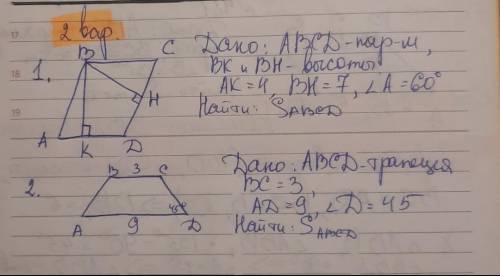 2 вар.
1.
B
C
H
A
K
D
Дано: ABCD-пар-м,
BK и BH - высоты
AK=4, BH=7, ∠A=60°
Найти: S ABCD
2.
B 3 C
45°
A 9 D
Дано: ABCD-трапеция
BC=3,
AD=9, ∠D=45
Найти: S ABCD
17
18
19